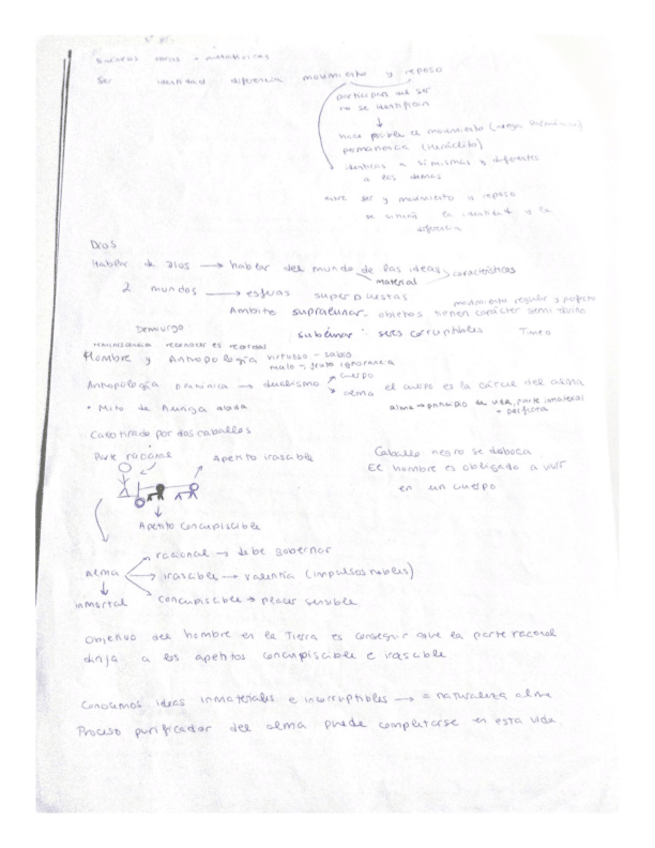 Ser identidad diferencia movimiento y reposo
participan del ser
no se identifican
hace posible el movimiento (niega
permanencia (Heráclito)
identicas a si mismas y diferentes
a los demas
entre ser y movimiento y reposo
se la identidad y la
diferencia
Dios
Hablar de Dios → hablar del mundo de las ideas, características
material
2 mundos → esferas superpuestas
movimiento regular y perfecto
Ambito supralunar - objetos tienen carácter semi divino
Demiurgo sublunar: seres corruptibles Timeo
reminiscencia reconocer es recordar
Hombre y Antropología virtuoso - sabio
malo - fruto ignorancia
Antropología → dualismo cuerpo
alma el cuerpo es la cárcel del alma
alma → principio de vida, parte inmaterial
+ perfecta
• Mito de Auriga alada
Carro tirado por dos caballos
Parte racional Apetito irascible
Caballo negro se desboca
El hombre es obligado a vivir
en un cuerpo
Apetito concupiscible
Alma racional → debe gobernar
irascible → valentía (impulsos nobles)
concupiscible → placer sensible
inmortal
Objetivo del hombre en la Tierra es conseguir que la parte racional
dirija a los apetitos concupiscible e irascible
Conocemos ideas inmateriales e incorruptibles → = naturaleza alma
Proceso purificador del alma puede completarse en esta vida.